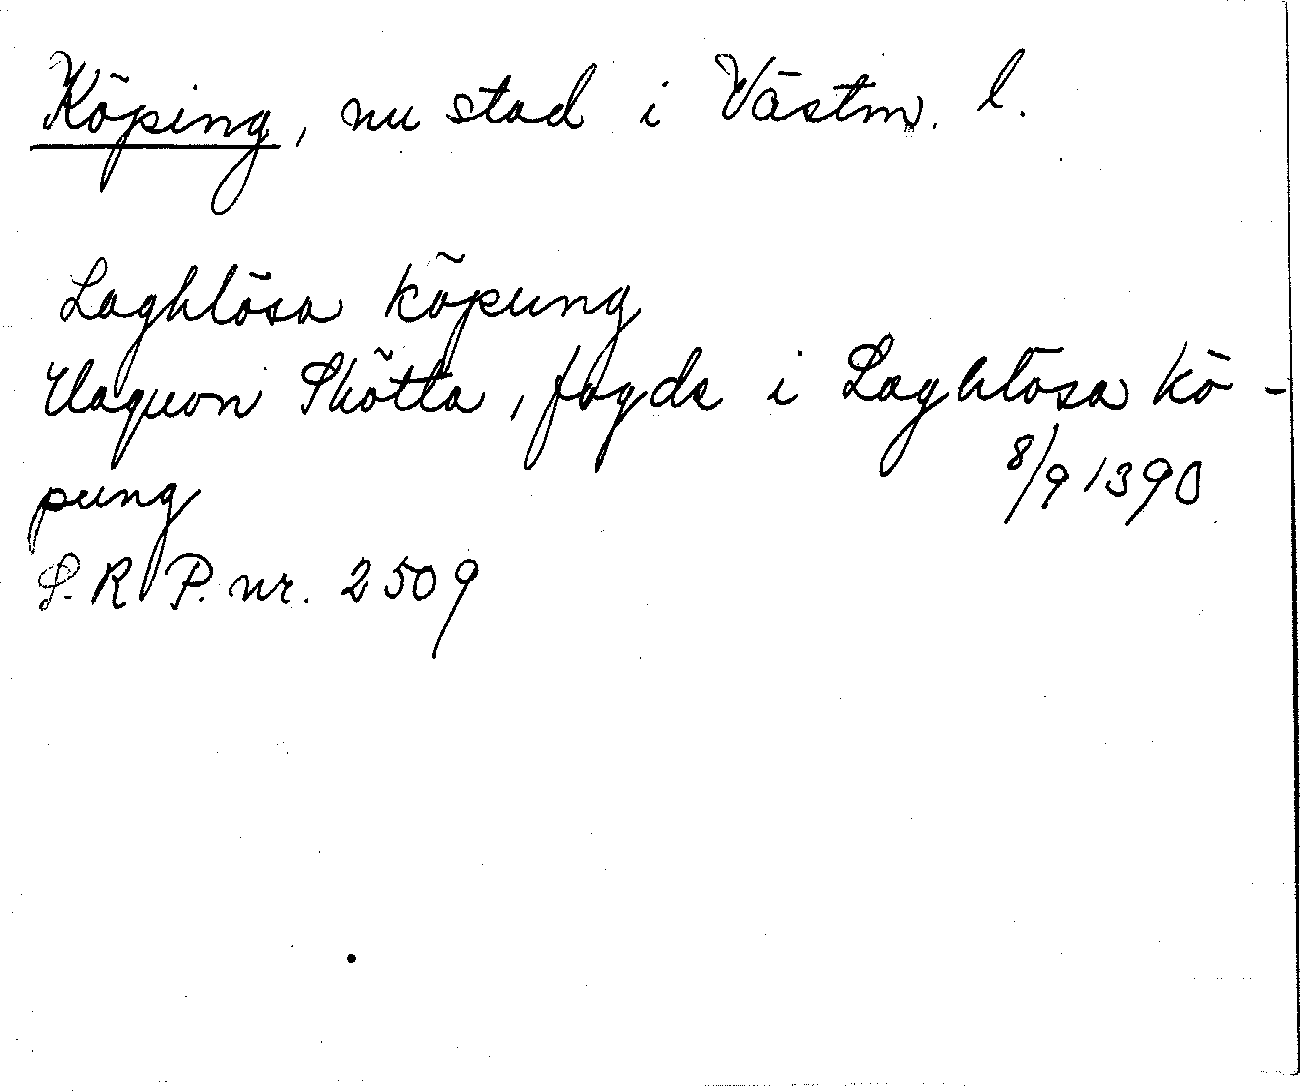 Köping, nu stad i Västm. l.
Laghlösa köpung
Haquon Skötta, fogde i Laghlösa kö-
pung 8/9 1390
S. R P. nr. 2509